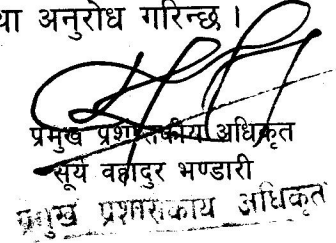 था अनुरोध गरिन्छ ।
प्रमुख प्रशासकीय अधिकृत
सूर्य वहादुर भण्डारी
प्रमुख प्रशासकीय अधिकृत